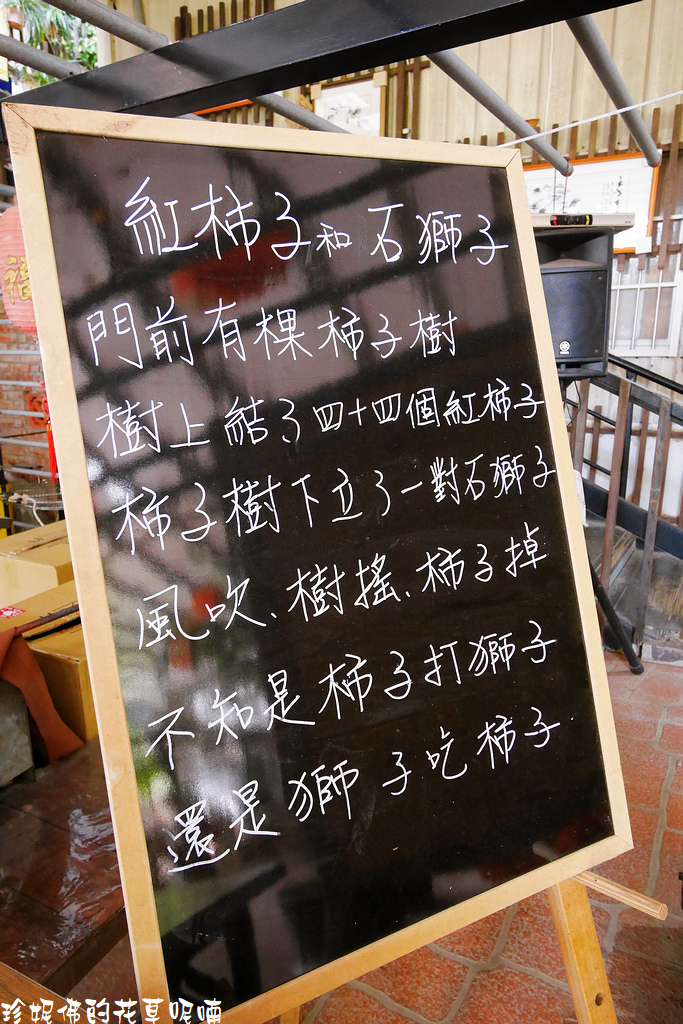 紅柿子和石獅子
門前有棵柿子樹
樹上結了四十四個紅柿子
柿子樹下立了一對石獅子
風吹、樹搖、柿子掉
不知是柿子打獅子
還是獅子吃柿子
福
珍妮佛的花草呢喃